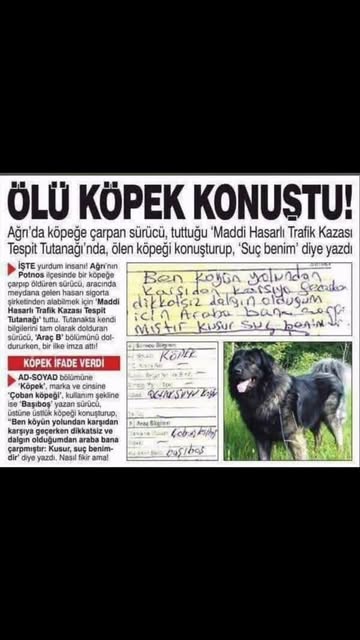 ÖLÜ KÖPEK KONUŞTU!
Ağrı'da köpeğe çarpan sürücü, tuttuğu 'Maddi Hasarlı Trafik Kazası
Tespit Tutanağı'nda, ölen köpeği konuşturup, 'Suç benim' diye yazdı
İŞTE yurdum insanı! Ağrı'nın
Potnos ilçesinde bir köpeğe
çarpıp öldüren sürücü, aracında
meydana gelen hasarı sigorta
şirketinden alabilmek için 'Maddi
Hasarlı Trafik Kazası Tespit
Tutanağı' tuttu. Tutanakta kendi
bilgilerini tam olarak dolduran
sürücü, 'Araç B' bölümünü dol-
dururken, bir ilke imza attı!
KÖPEK İFADE VERDİ
AD-SOYAD bölümüne
'Köpek', marka ve cinsine
'Çoban köpeği', kullanım şekline
ise 'Başıboş' yazan sürücü,
üstüne üstlük köpeği konuşturup,
"Ben köyün yolundan karşıdan
karşıya geçerken dikkatsiz ve
dalgın olduğumdan araba bana
çarpmıştır: Kusur, suç benim-
dir' diye yazdı. Nasıl fikir ama!
Ben köyün yolundan
karşıdan karşıya
dikkatsiz dalgın olduğum
için Araba bana çarp
mıştır kusur suç benim
Sürücü Bilgileri
KÖPEK
Araç Bilgileri
Çoban köpeği
başıboş